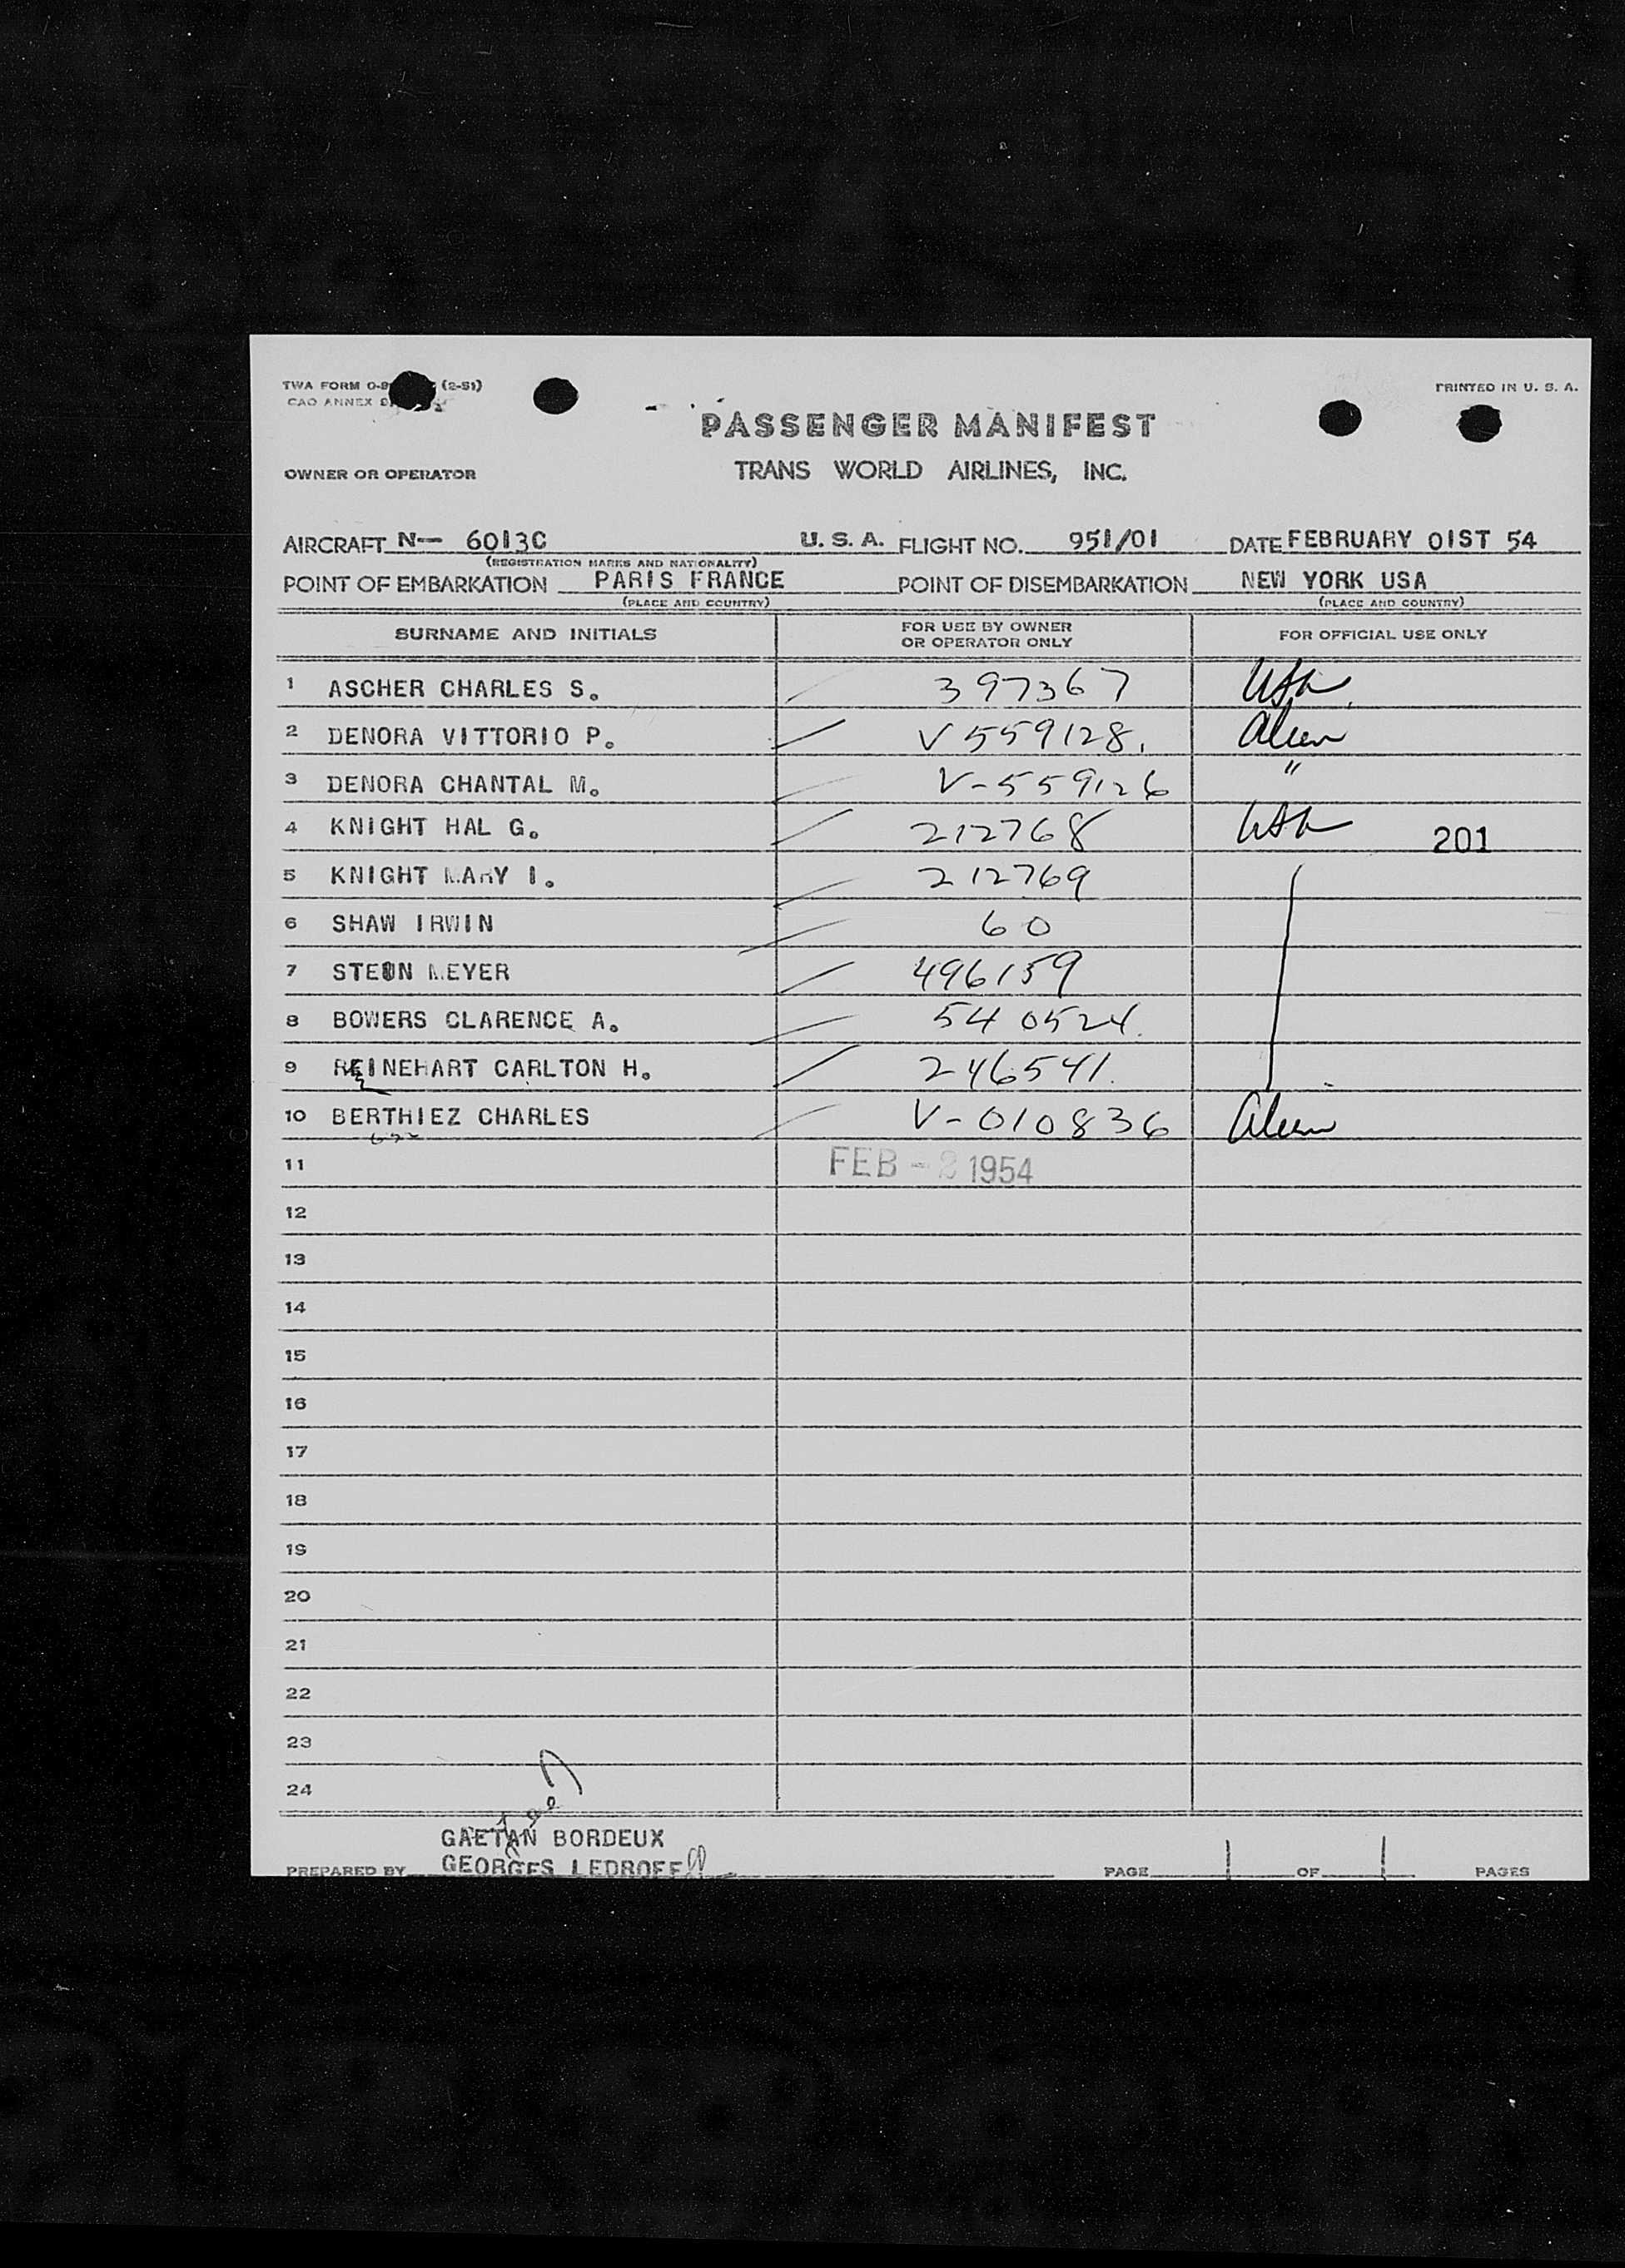 TWA FORM O-8 (2-51)
CAO ANNEX 9
PRINTED IN U. S. A.
PASSENGER MANIFEST
OWNER OR OPERATOR TRANS WORLD AIRLINES, INC.
AIRCRAFT N-- 6013C U. S. A. FLIGHT NO. 951/01 DATE FEBRUARY 01ST 54
(REGISTRATION MARKS AND NATIONALITY)
POINT OF EMBARKATION PARIS FRANCE POINT OF DISEMBARKATION NEW YORK USA
(PLACE AND COUNTRY) (PLACE AND COUNTRY)
SURNAME AND INITIALS FOR USE BY OWNER OR OPERATOR ONLY FOR OFFICIAL USE ONLY
1 ASCHER CHARLES S. 397367 USA
2 DENORA VITTORIO P. V 559128. Alien
3 DENORA CHANTAL M. V-559126 "
4 KNIGHT HAL G. 212768 USA 201
5 KNIGHT MARY I. 212769
6 SHAW IRWIN 60
7 STEIN MEYER 496159
8 BOWERS CLARENCE A. 540524.
9 REINEHART CARLTON H. 246541.
10 BERTHIEZ CHARLES V-010836 Alien
11 FEB - 2 1954
12
13
14
15
16
17
18
19
20
21
22
23
24
GAETAN BORDEUX
PREPARED BY GEORGES LEDROFF PAGE 1 OF 1 PAGES